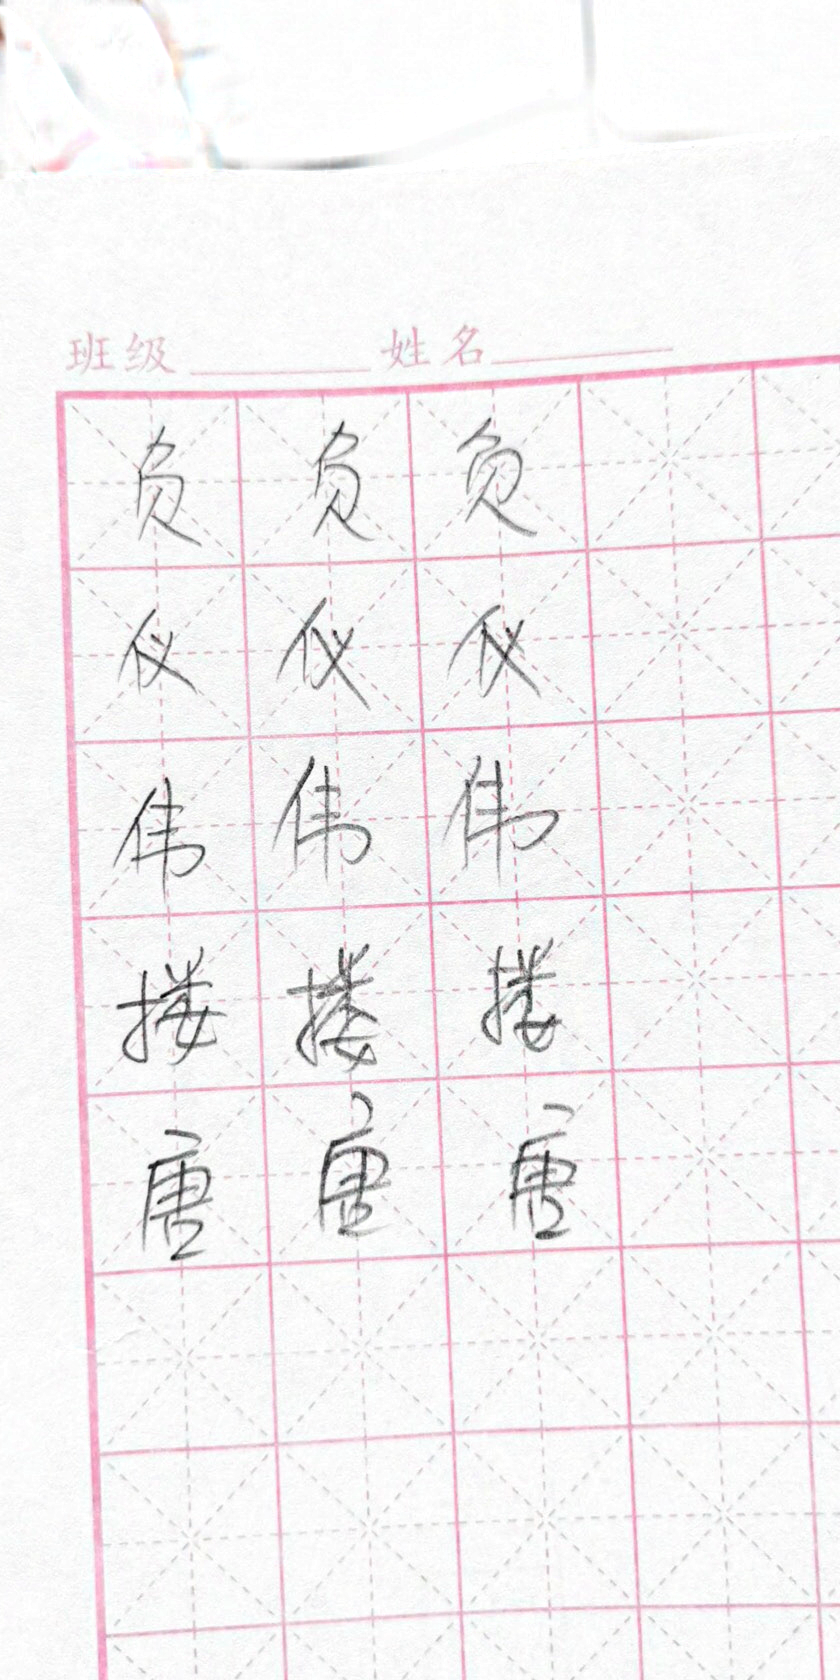 班级 姓名
负 负 负
仪 仪 仪
伟 伟 伟
搂 搂 搂
唐 唐 唐